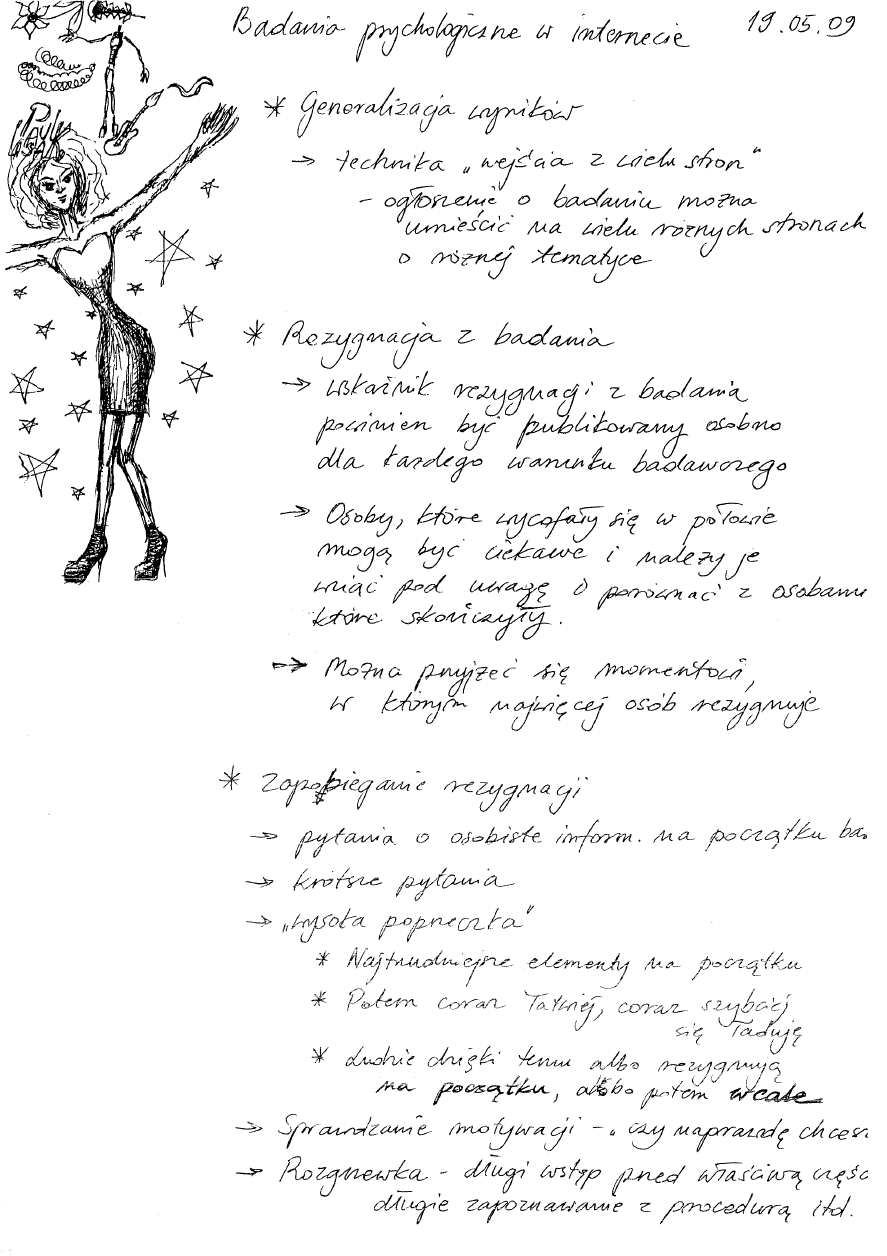 Badania psychologiczne w internecie 19.05.09
* Generalizacja wyników
→ technika „wejścia z wielu stron”
- ogłoszenie o badaniu można
umieścić na wielu różnych stronach
o różnej tematyce
* Rezygnacja z badania
→ wskaźnik rezygnacji z badania
powinien być publikowany osobno
dla każdego warunku badawczego
→ Osoby, które wycofały się w połowie
mogą być ciekawe i należy je
wziąć pod uwagę i porównać z osobami
które skończyły.
→ Można przyjżeć się momentowi,
w którym najwięcej osób rezygnuje
* Zapobieganie rezygnacji
→ pytania o osobiste inform. na początku ba
→ krótsze pytania
→ „wysoka poprzeczka”
* Najtrudniejsze elementy na początku
* Potem coraz łatwiej, coraz szybciej
się ładuję
* Ludzie dzięki temu albo rezygnują
na początku, albo potem wcale
→ Sprawdzanie motywacji - „czy naprawdę chcesz
→ Rozgrzewka - długi wstęp przed właściwą częśc
długie zapoznawanie z procedurą itd.